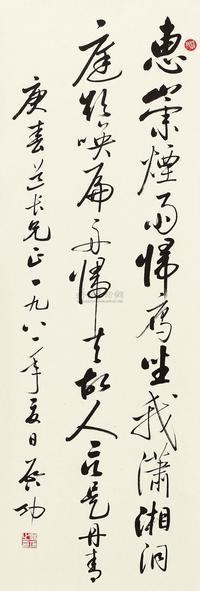 惠崇煙雨歸雁坐我瀟湘洞
庭欲喚扁舟歸去故人言是丹青
庚春道长兄正一九八一年夏日启功